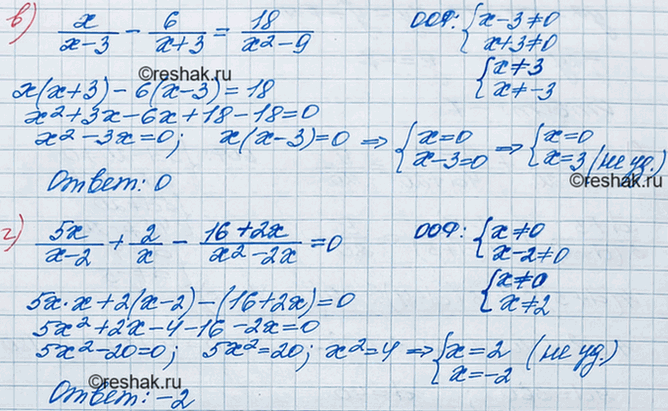 в) x/(x-3) - 6/(x+3) = 18/(x²-9) ООФ: { x-3≠0
x+3≠0
{ x≠3
x≠-3
©reshak.ru
x(x+3)-6(x-3)=18
x²+3x-6x+18-18=0
x²-3x=0; x(x-3)=0 ⇒ { x=0 ⇒ { x=0
x-3=0 x=3 (не уд.)
©reshak.ru
Ответ: 0
г) 5x/(x-2) + 2/x - (16+2x)/(x²-2x) = 0 ООФ: { x≠0
x-2≠0
{ x≠0
x≠2
5x·x+2(x-2)-(16+2x)=0
5x²+2x-4-16-2x=0
5x²-20=0; 5x²=20; x²=4 ⇒ { x=2 (не уд.)
x=-2
©reshak.ru
Ответ: -2